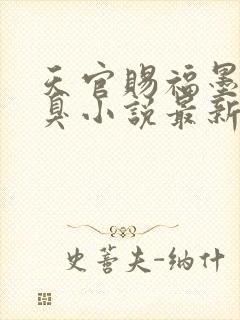 天官赐福墨
臭小说最新
史蒈夫-纳什